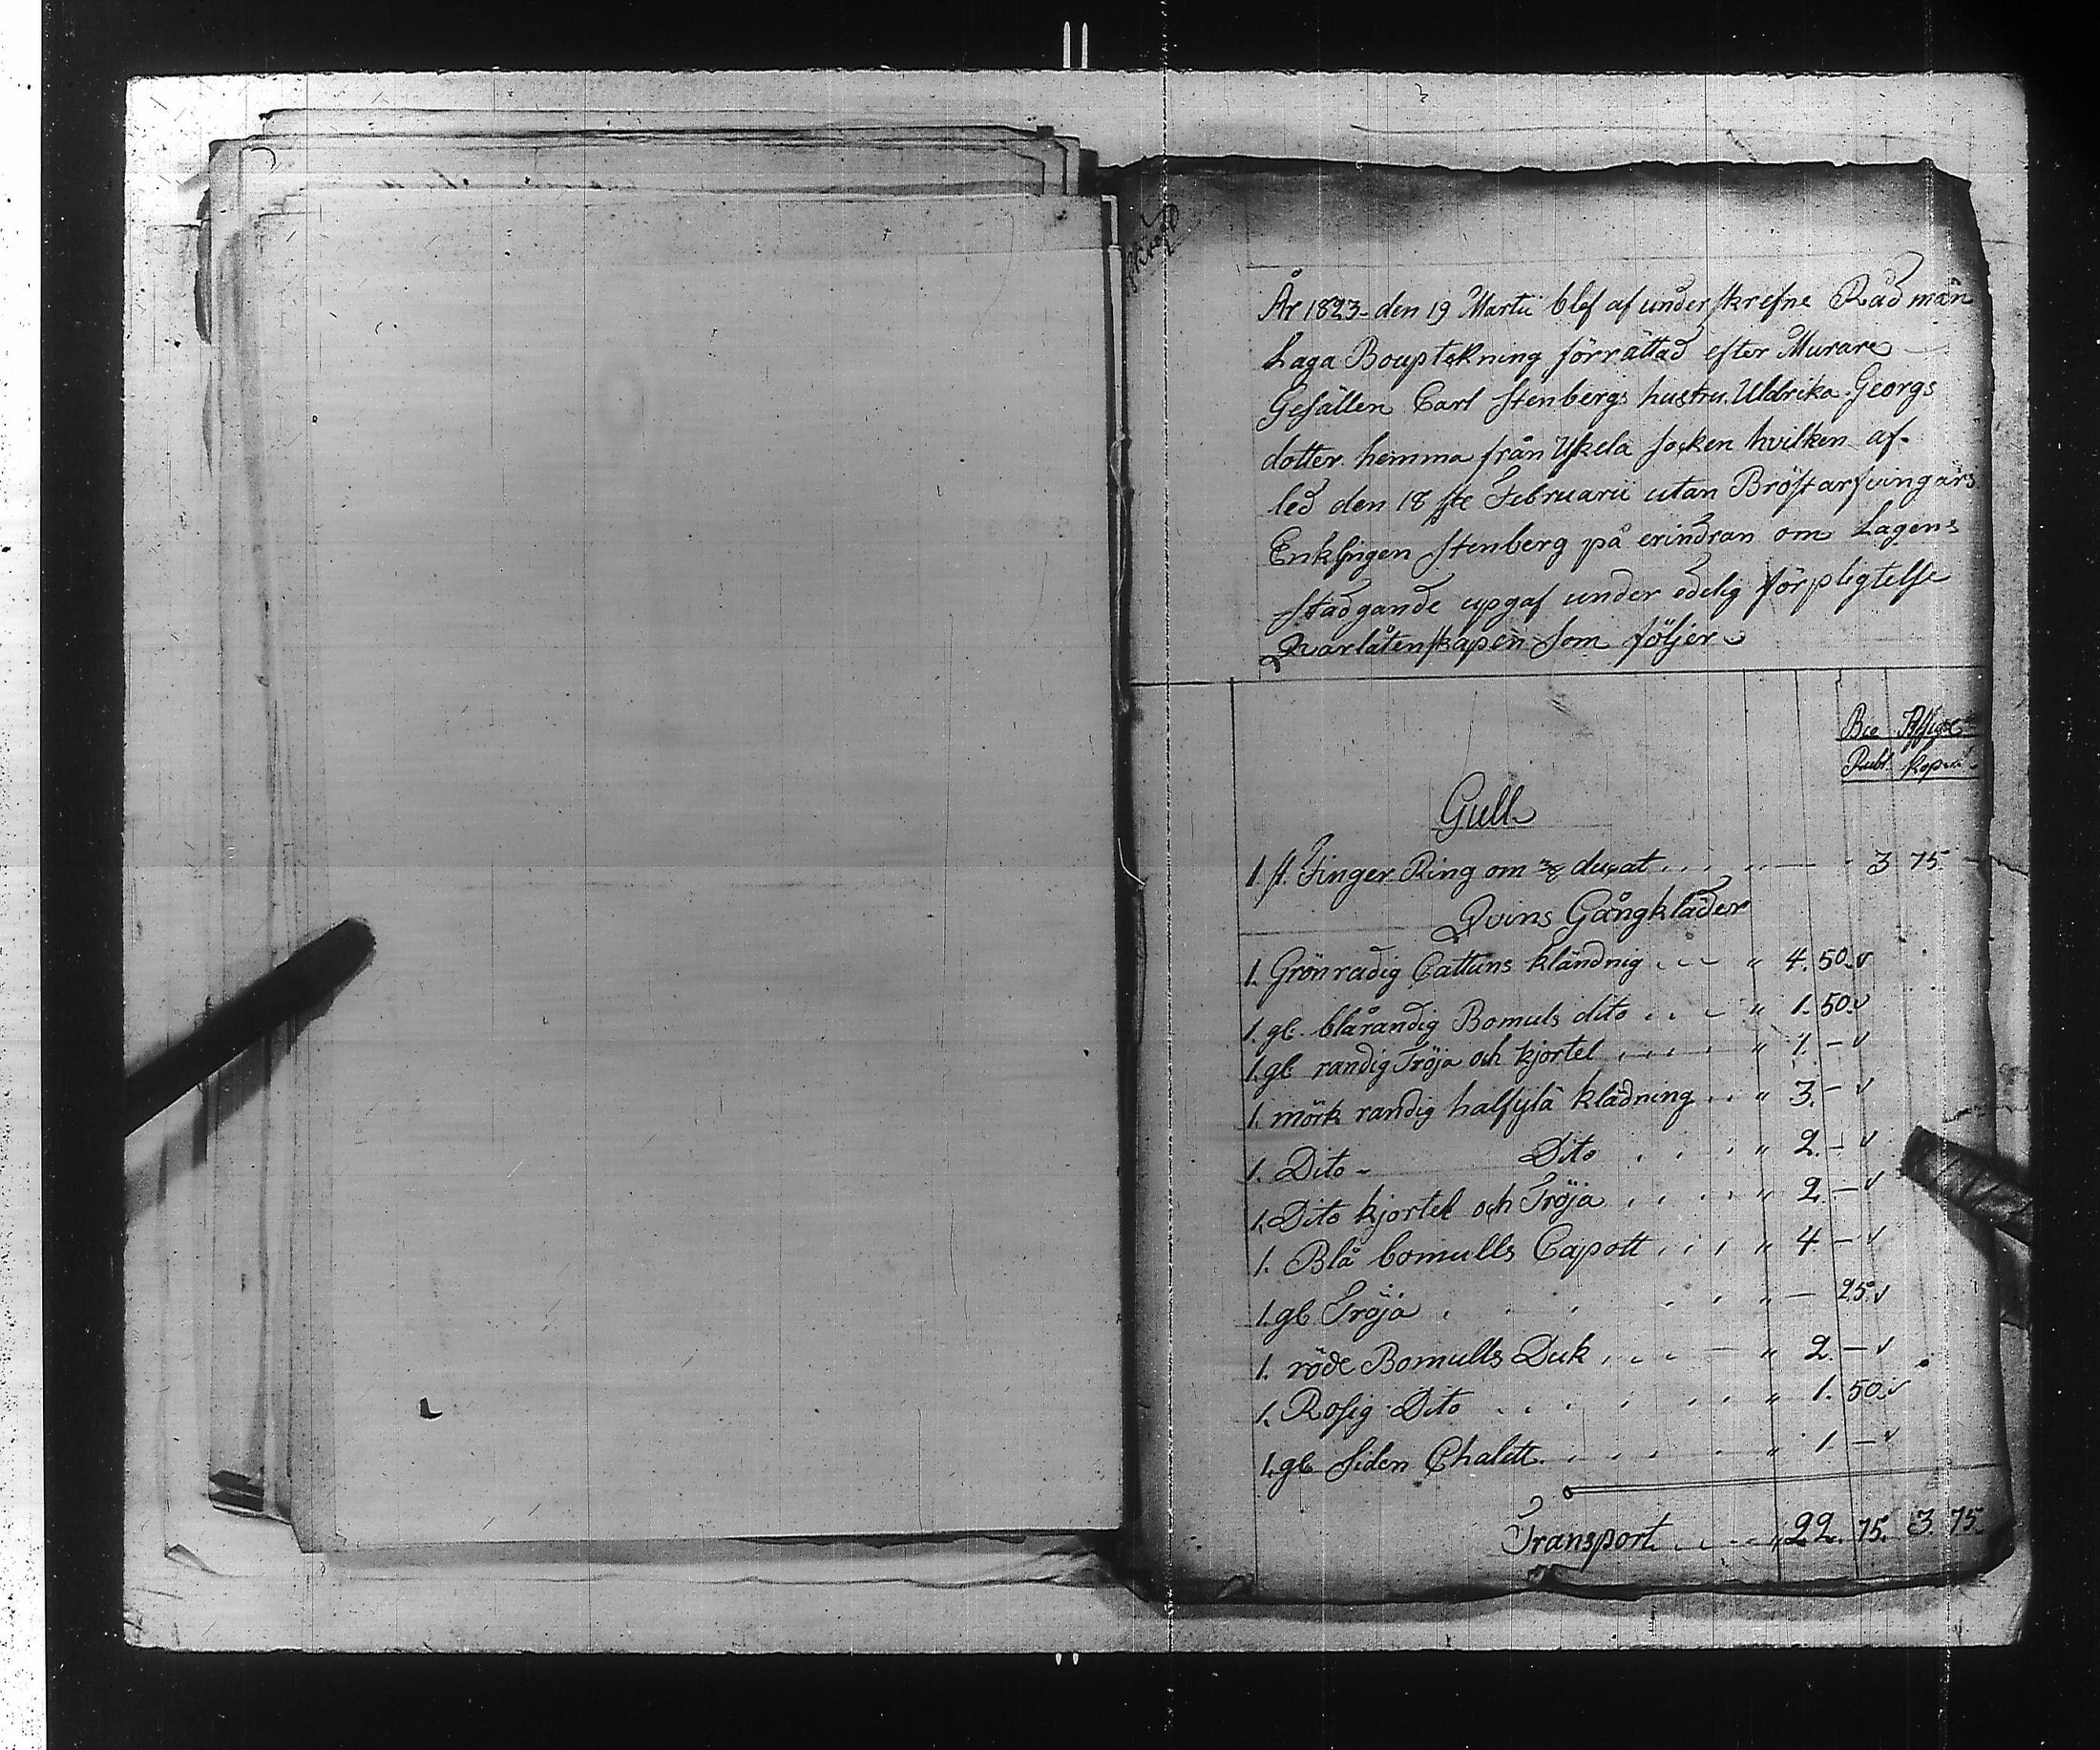 År 1823 den 19 Martii blef af underskrefne Rådmän
Laga Bouptekning förrättad efter Murare
Gesällen Carl Stenbergs hustru Uldrika Georgs
dotter hemma från Uskela Socken hvilken af-
led den 18 ste Februarii utan Bröstarfvingar:
Enklingen Stenberg på erindran om Lagens
Stadgande upgaf under edelig förpligtelse
Qvarlåtenskapen som följer
Bco Assigne
Rubl Kopek
Gull
1. st. Finger Ring om ducat 3 75
Qvins Gångkläder
1. Grönradig Cattuns kländnig " 4. 50. v
1. gl. blårandig Bomuls dito " 1. 50. v
1. gl randig Tröja och kjortel " 1. - v
1. mörk randig halfylä klädning " 3. - v
1. Dito - Dito " 2. - v
1. Dito kjortel och Tröja " 2. - v
1. Blå bomulls Capott " 4 - v
1. gl Tröja " - 25. v
1. röde Bomulls Duk " 2. - v
1. Rosig Dito " 1. 50. v
1. gl Siden Chalett " 1. - v
Transport " 22. 75. 3. 75.